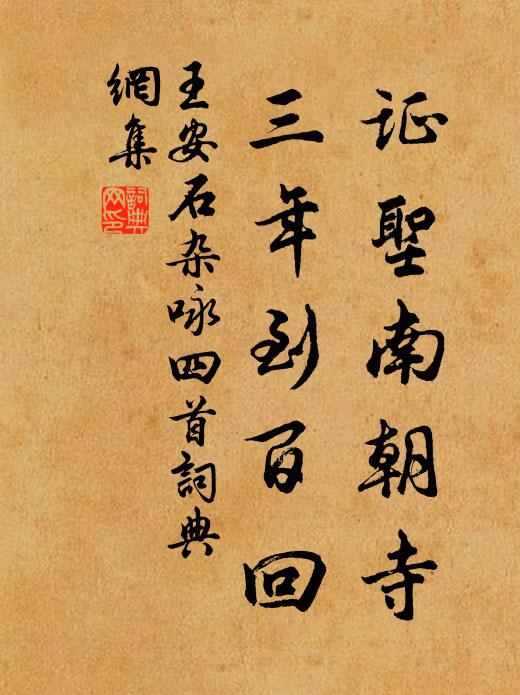 证聖南朝寺
三年到百回
王安石杂咏四首詞典
網集
詞典
网印